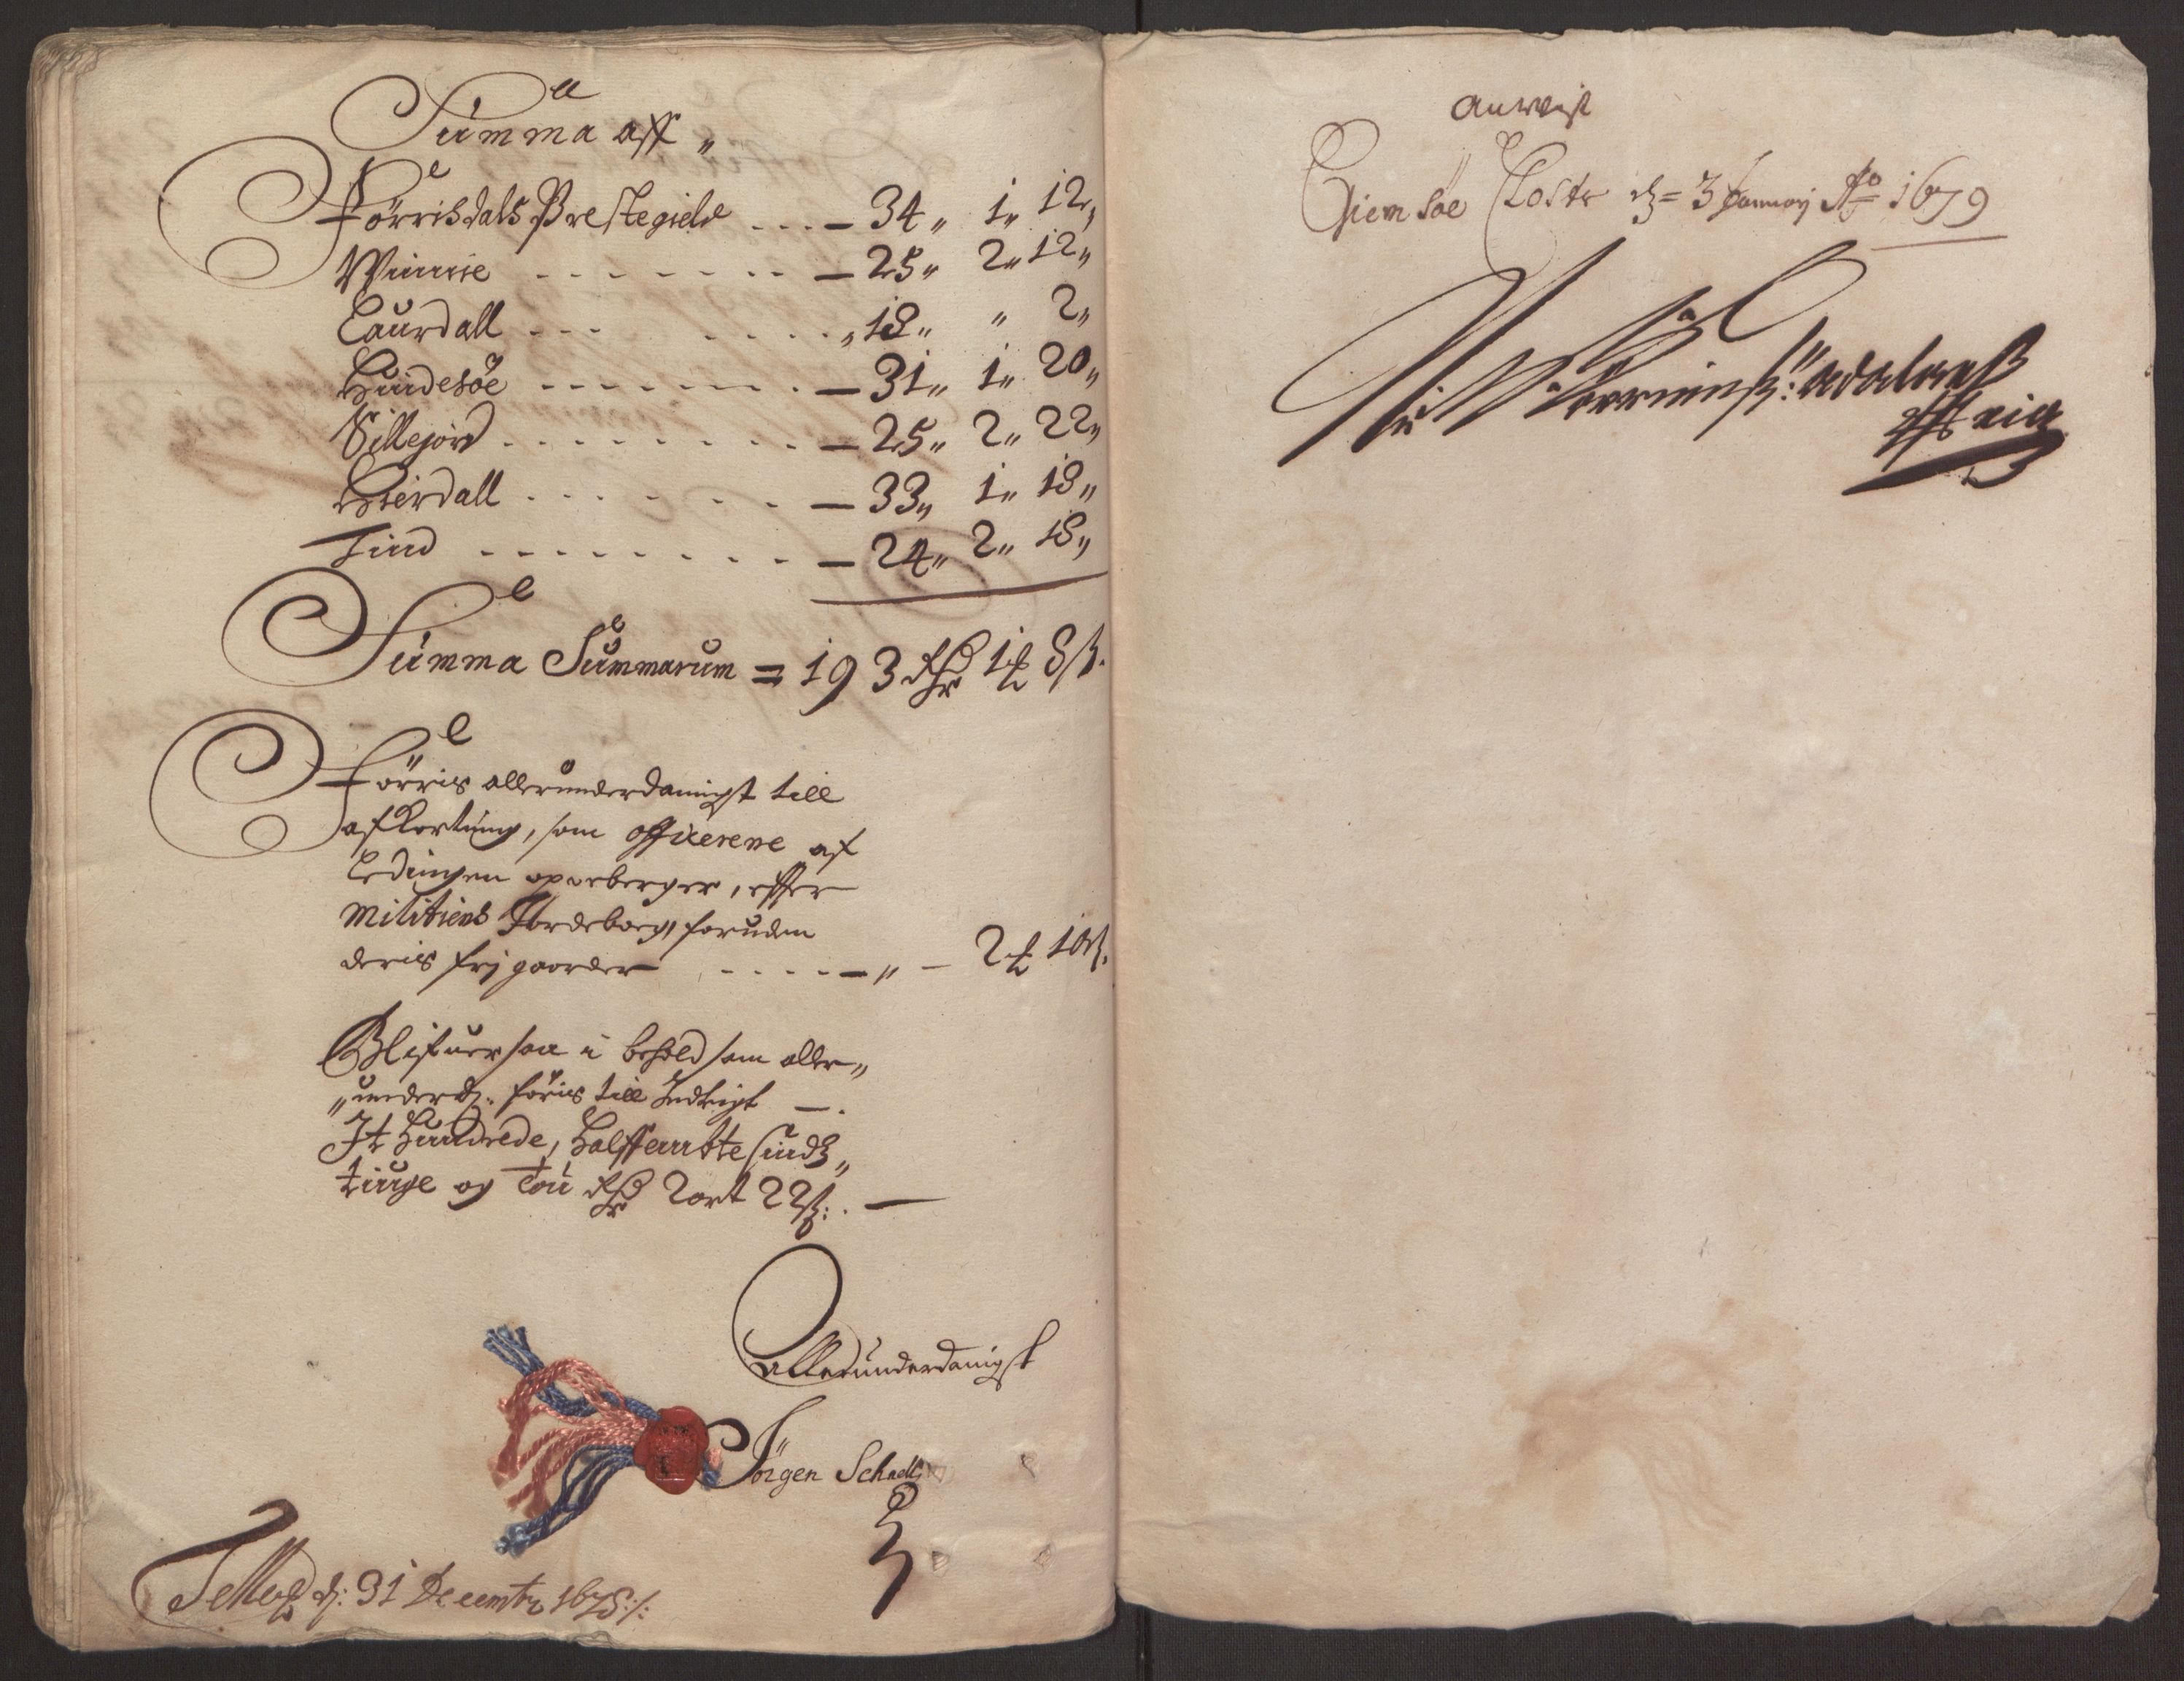 Summa aff „
Förrisdals Prestegield ... — 34 „ 1 „ 12 „
Winnie - - - - - - - — 25 „ 2 „ 12 „
Laurdall - - - . . . . „ 18 „ „ 2 „
Huidesöe - - - - - - - — 31 „ 1 „ 20 „
Sillejord . - - - - - - — 25 „ 2 „ 22 „
Hierdall . - - - - - — 33 „ 1 „ 18 „
Tind - - - - - - - - — 24 „ 2 „ 18 „
Summa Summarum = 193 Rdr 1 ort 8 ß.
Förris allerunderdanigst till
afkortning, som officerene af
Ledingen oppeberger, effter
Militiens Jordebog, foruden
deris frj gaarder - - - - — „ — 2 ort 10 ß.
Blifuer saa i behold som aller„
„underd: föris till Indtegt — .
It Hundrede, Halffemtte Sinds„
tiuge og Tou Rdr 2 ort 22 ß: . —
Allerunderdanigst
Jörgen Schade
d: 31 Decembr 1678 :/:
anvist
Giemsöe Closter d= 3 January Ao 1679